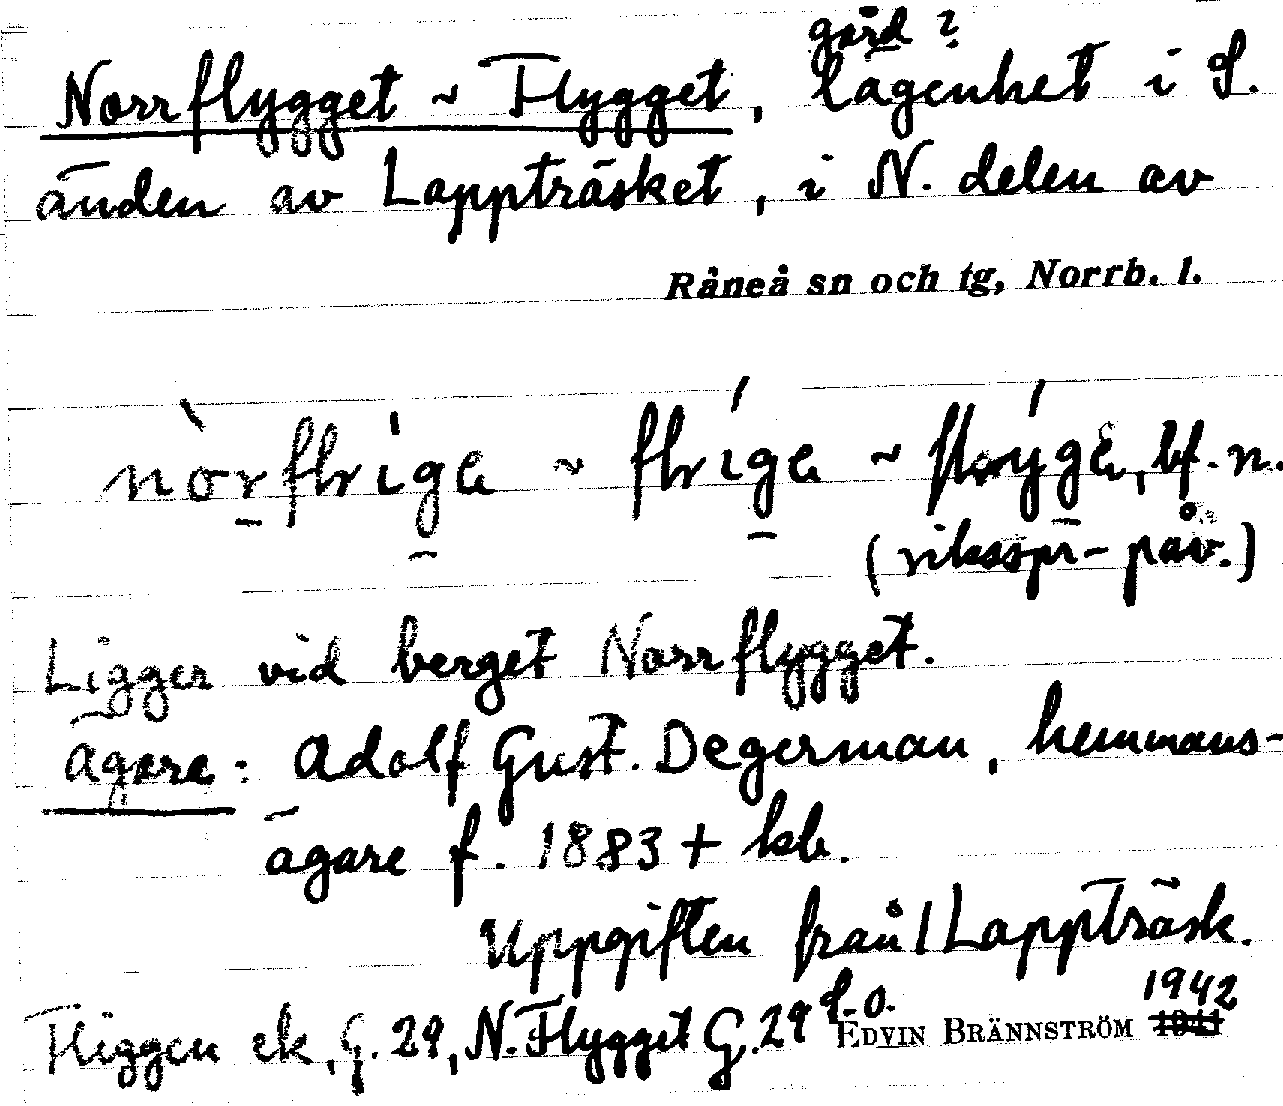 gård ?
Norrflygget ~ Flygget, lägenhet i S.
änden av Lappträsket, i N. delen av
Råneå sn och tg, Norrb. l.
~ bf. n.
(riksspr-påv.)
Ligger vid berget Norrflygget.
ägare: Adolf Gust. Degerman, hemmans-
ägare f. 1883 + kb.
Uppgiften från Lappträsk.
1942
Fliggen ek, G. 29, N. Flygget G. 29 S. o. EDVIN BRÄNNSTRÖM 1941